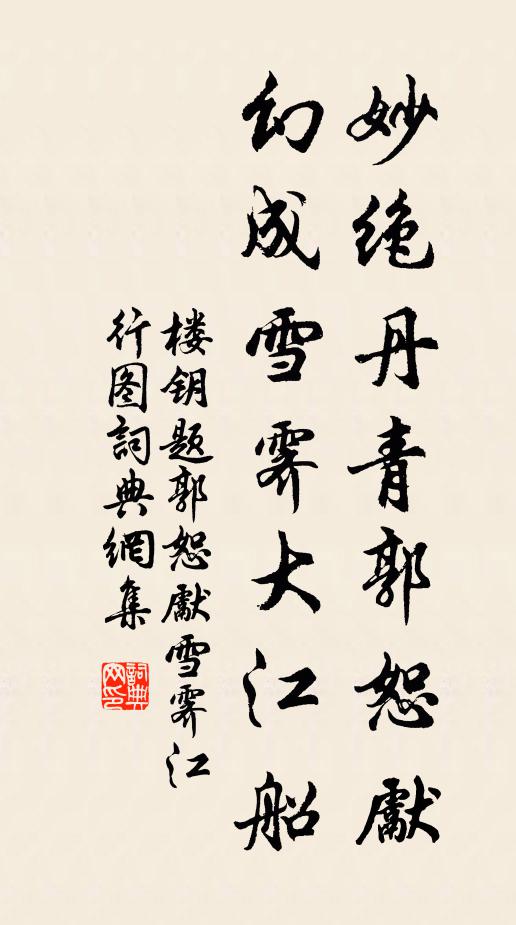 妙绝丹青郭恕獻
幻成雪霁大江船
楼钥题郭恕獻雪霁江
行图詞典網集
詞典网印